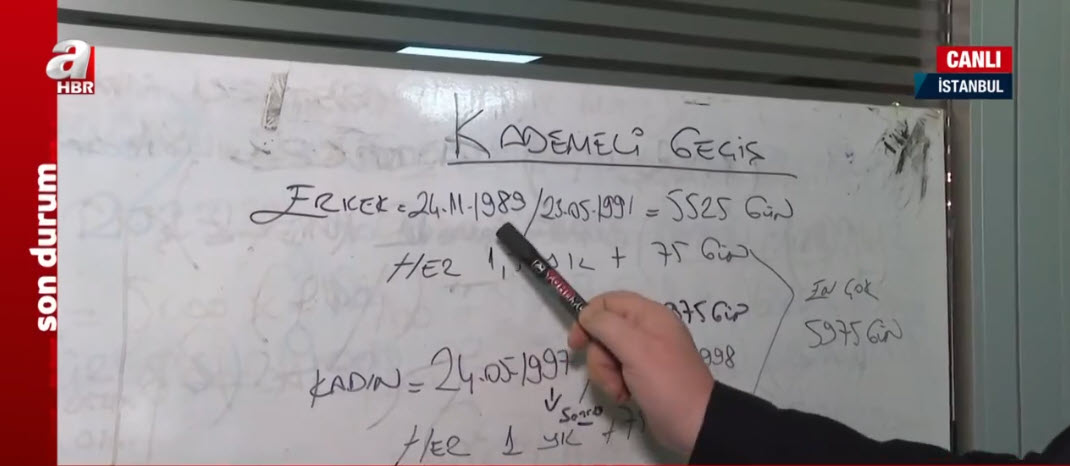 a
HBR
CANLI
İSTANBUL
son durum
KADEMELİ GEÇİŞ
ERKEK = 24.11.1989/23.05.1991 = 5525 GÜN
HER 1, YK + 75 GÜN
EN ÇOK
5975 GÜN
975 GÜN
KADIN = 24.05.1997 998
Sonra
HER 1 YK +7